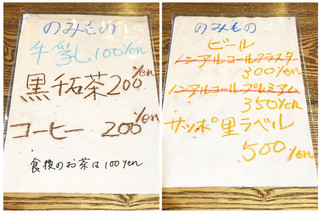 のみもの
牛乳 100yen
黒千石茶 200yen
コーヒー 200yen
食後のお茶は100yen
のみもの
ビール
ノンアルコールクラスタ
300yen
ノンアルコールプレミアム
350yen
サッポロ黒ラベル
500yen